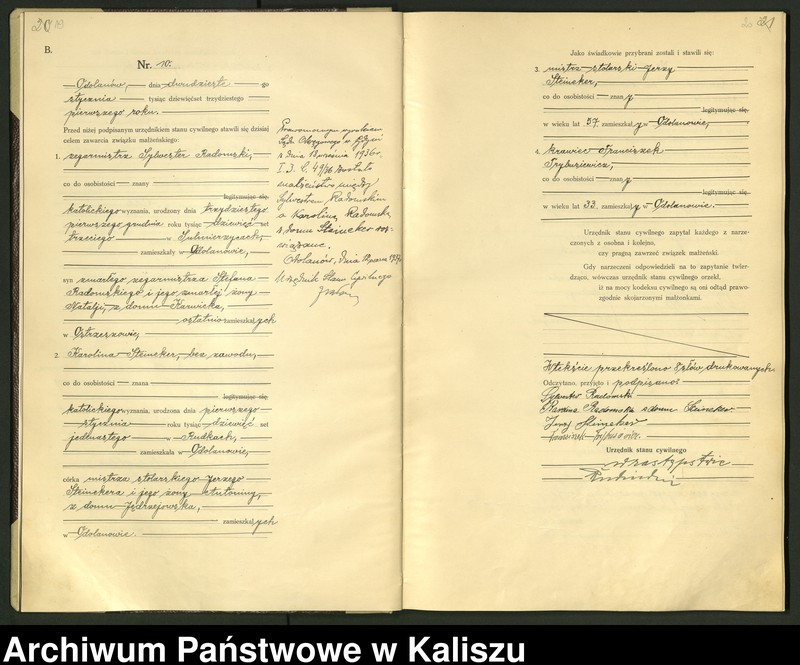 20
B.
Nr. 10.
Odolanów, dnia dwudziestego
stycznia tysiąc dziewięćset trzydziestego
pierwszego roku.
Przed niżej podpisanym urzędnikiem stanu cywilnego stawili się dzisiaj
celem zawarcia związku małżeńskiego:
1. zegarmistrz Sylwester Radomski,
co do osobistości znany
legitymując się
katolickiego wyznania, urodzony dnia trzydziestego
pierwszego grudnia roku tysiąc dziewięćset
trzeciego w Sulmierzycach,
zamieszkały w Odolanowie,
syn zmarłego zegarmistrza Stefana
Radomskiego i jego zmarłej żony
Natalji, z domu Karwicka,
ostatnio zamieszkałych
w Ostrzeszowie,
2. Karolina Steineker, bez zawodu,
co do osobistości znana
legitymując się
katolickiego wyznania, urodzona dnia pierwszego
stycznia roku tysiąc dziewięć set
jedenastego w Rudkach,
zamieszkała w Odolanowie,
córka mistrza stolarskiego Jerzego
Steinekera i jego żony Antoniny,
z domu Jędrzejowska,
zamieszkałych
w Odolanowie.
Prawomocnym wyrokiem
Sądu Okręgowego w
z dnia 1936r.
zostało
małżeństwo między
Sylwestrem Radomskim
a Karoliną Radomską
z domu Steineker roz-
wiązane.
Odolanów, dnia
Urzędnik Stanu Cywilnego
21
Jako świadkowie przybrani zostali i stawili się:
3. mistrz stolarski Jerzy
Steineker,
co do osobistości znany
legitymując się
w wieku lat 57, zamieszkały w Odolanowie,
4. krawiec Franciszek
Trybusiewicz,
co do osobistości znany
legitymując się
w wieku lat 33, zamieszkały w Odolanowie.
Urzędnik stanu cywilnego zapytał każdego z narze-
czonych z osobna i kolejno,
czy pragną zawrzeć związek małżeński.
Gdy narzeczeni odpowiedzieli na to zapytanie twier-
dząco, wówczas urzędnik stanu cywilnego orzekł,
iż na mocy kodeksu cywilnego są oni odtąd prawo-
zgodnie skojarzonymi małżonkami.
W tekście przekreślono 8 słów drukowanych.
Odczytano, przyjęto i podpisano:
Sylwester Radomski
Karolina Radomska z domu Steineker
Jerzy Steineker
Urzędnik stanu cywilnego
w zastępstwie
Archiwum Państwowe w Kaliszu